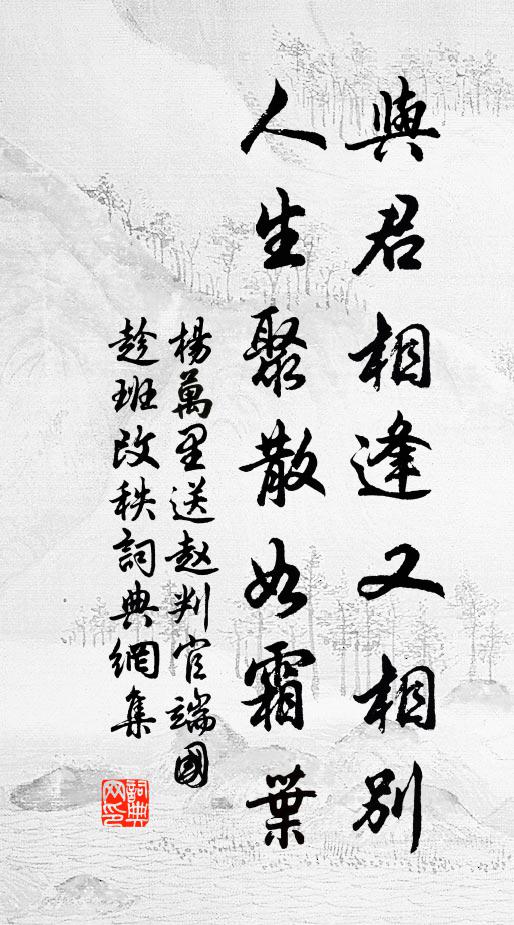 與君相逢又相別
人生聚散如霜葉
楊萬里送趙判官端國
趁班改秩詞典網集
詞典网印